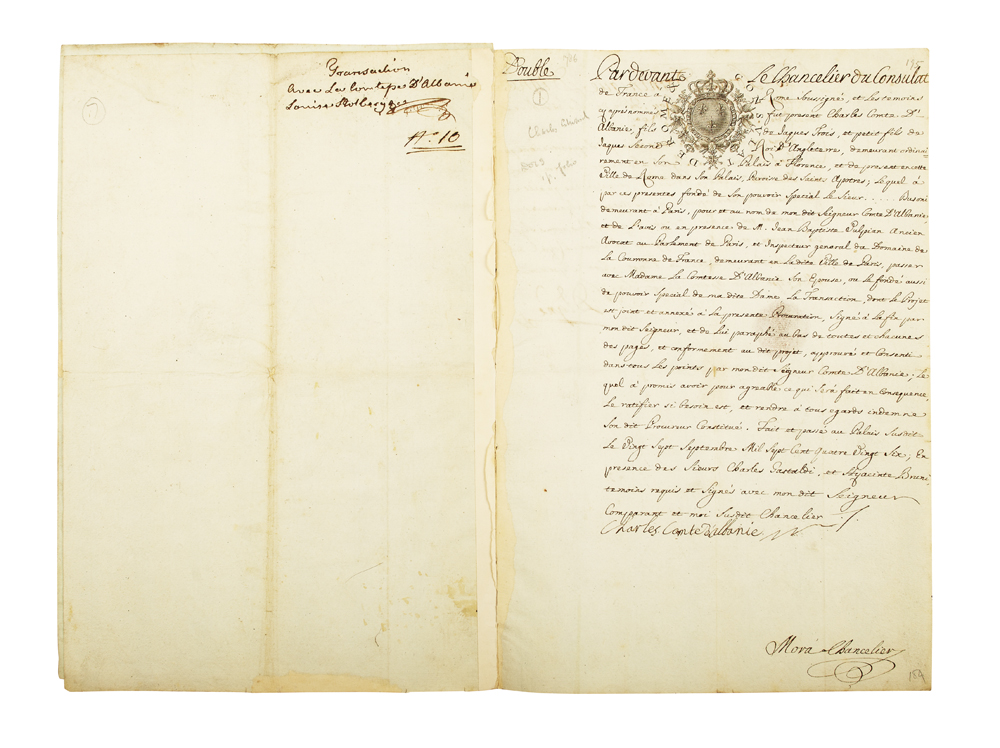 Transaction
avec La Comtesse D'Albanie
Louise Stolberg
N.° 10
Double
1
Pardevant Le Chancelier du Consulat
de France à Rome Soussigné, et Les temoins
cy après nommés fut present Charles Comte D'
Albanie, fils de Jaques Trois, et petit fils de
Jaques Second Roi D'Angleterre, demeurant ordinai
rement en Son Palais à Florence, et de present en cette
Ville de Rome dans Son Palais, Paroisse des Saints Apotres; Le quel à
par ces presentes fondé de Son pouvoir Special Le Sieur ..... Busoni
demeurant à Paris, pour et au nom de mon dit Seigneur Comte D'Albanie,
et de L'avis ou en presence de M. Jean Baptiste Vulpian Ancien
Avocat au Parlement de Paris, et Inspecteur general du Domaine de
La Couronne de France, demeurant en La dite Ville de Paris, passer
avec Madame La Comtesse D'Albanie Son Epouse, ou Le fondé aussi
de pouvoir Special de ma dite Dame La Transaction, dont Le Projet
est joint et annexé à La presente Procuration, Signé à La fin par
mon dit Seigneur, et de Lui paraphé au bas de toutes et chacunes
des pages, et conformement au dit projet, approuvé et Consenti
dans tous Les points par mon dit Seigneur Comte D'Albanie; Le
quel à promis avoir pour agreable ce qui Sera fait en Consequence,
Le ratifier si besoin est, et rendre à tous egards indemne
Son dit Procureur Constitué. Fait et passé au Palais Susdit
Le Vingt Sept Septembre Mil Sept Cent Quatre Vingt Six; En
presence des Sieurs Charles Gastaldi, et Hyacinte Bruni
temoins requis et Signés avec mon dit Seigneur
Comparant et moi Susdit Chancelier
Charles Comte d'albanie
Mora Chancelier
195
184